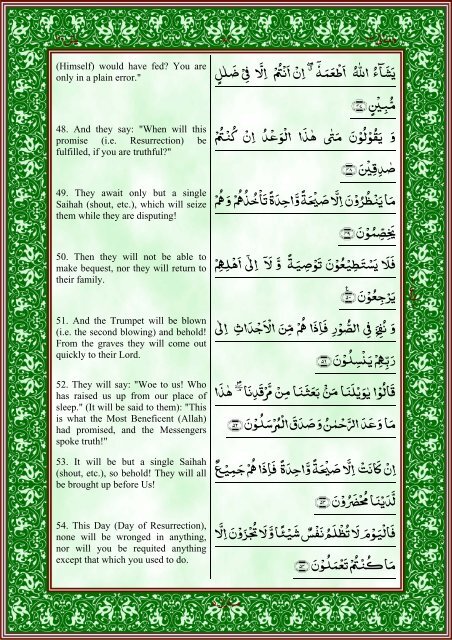 (Himself) would have fed? You are
only in a plain error."
يَشَآءُ اللّٰهُ اَطْعَمَهٗۤ ۖ اِنْ اَنْتُمْ اِلَّا فِيْ ضَلٰلٍ
مُّبِيْنٍ
48. And they say: "When will this
promise (i.e. Resurrection) be
fulfilled, if you are truthful?"
وَ يَقُوْلُوْنَ مَتٰى هٰذَا الْوَعْدُ اِنْ كُنْتُمْ
صٰدِقِيْنَ
49. They await only but a single
Saihah (shout, etc.), which will seize
them while they are disputing!
مَا يَنْظُرُوْنَ اِلَّا صَيْحَةً وَّاحِدَةً تَاْخُذُهُمْ وَهُمْ
يَخِصِّمُوْنَ
50. Then they will not be able to
make bequest, nor they will return to
their family.
فَلَا يَسْتَطِيْعُوْنَ تَوْصِيَةً وَّ لَاۤ اِلٰٓى اَهْلِهِمْ
يَرْجِعُوْنَ
51. And the Trumpet will be blown
(i.e. the second blowing) and behold!
From the graves they will come out
quickly to their Lord.
وَ نُفِخَ فِي الصُّوْرِ فَاِذَا هُمْ مِّنَ الْاَجْدَاثِ اِلٰى
رَبِّهِمْ يَنْسِلُوْنَ
52. They will say: "Woe to us! Who
has raised us up from our place of
sleep." (It will be said to them): "This
is what the Most Beneficent (Allah)
had promised, and the Messengers
spoke truth!"
قَالُوْا يٰوَيْلَنَا مَنْۢ بَعَثَنَا مِنْ مَّرْقَدِنَا ۘ هٰذَا
مَا وَعَدَ الرَّحْمٰنُ وَصَدَقَ الْمُرْسَلُوْنَ
53. It will be but a single Saihah
(shout, etc.), so behold! They will all
be brought up before Us!
اِنْ كَانَتْ اِلَّا صَيْحَةً وَّاحِدَةً فَاِذَا هُمْ جَمِيْعٌ
لَّدَيْنَا مُحْضَرُوْنَ
54. This Day (Day of Resurrection),
none will be wronged in anything,
nor will you be requited anything
except that which you used to do.
فَالْيَوْمَ لَا تُظْلَمُ نَفْسٌ شَيْـًٔا وَّ لَا تُجْزَوْنَ اِلَّا
مَا كُنْتُمْ تَعْمَلُوْنَ